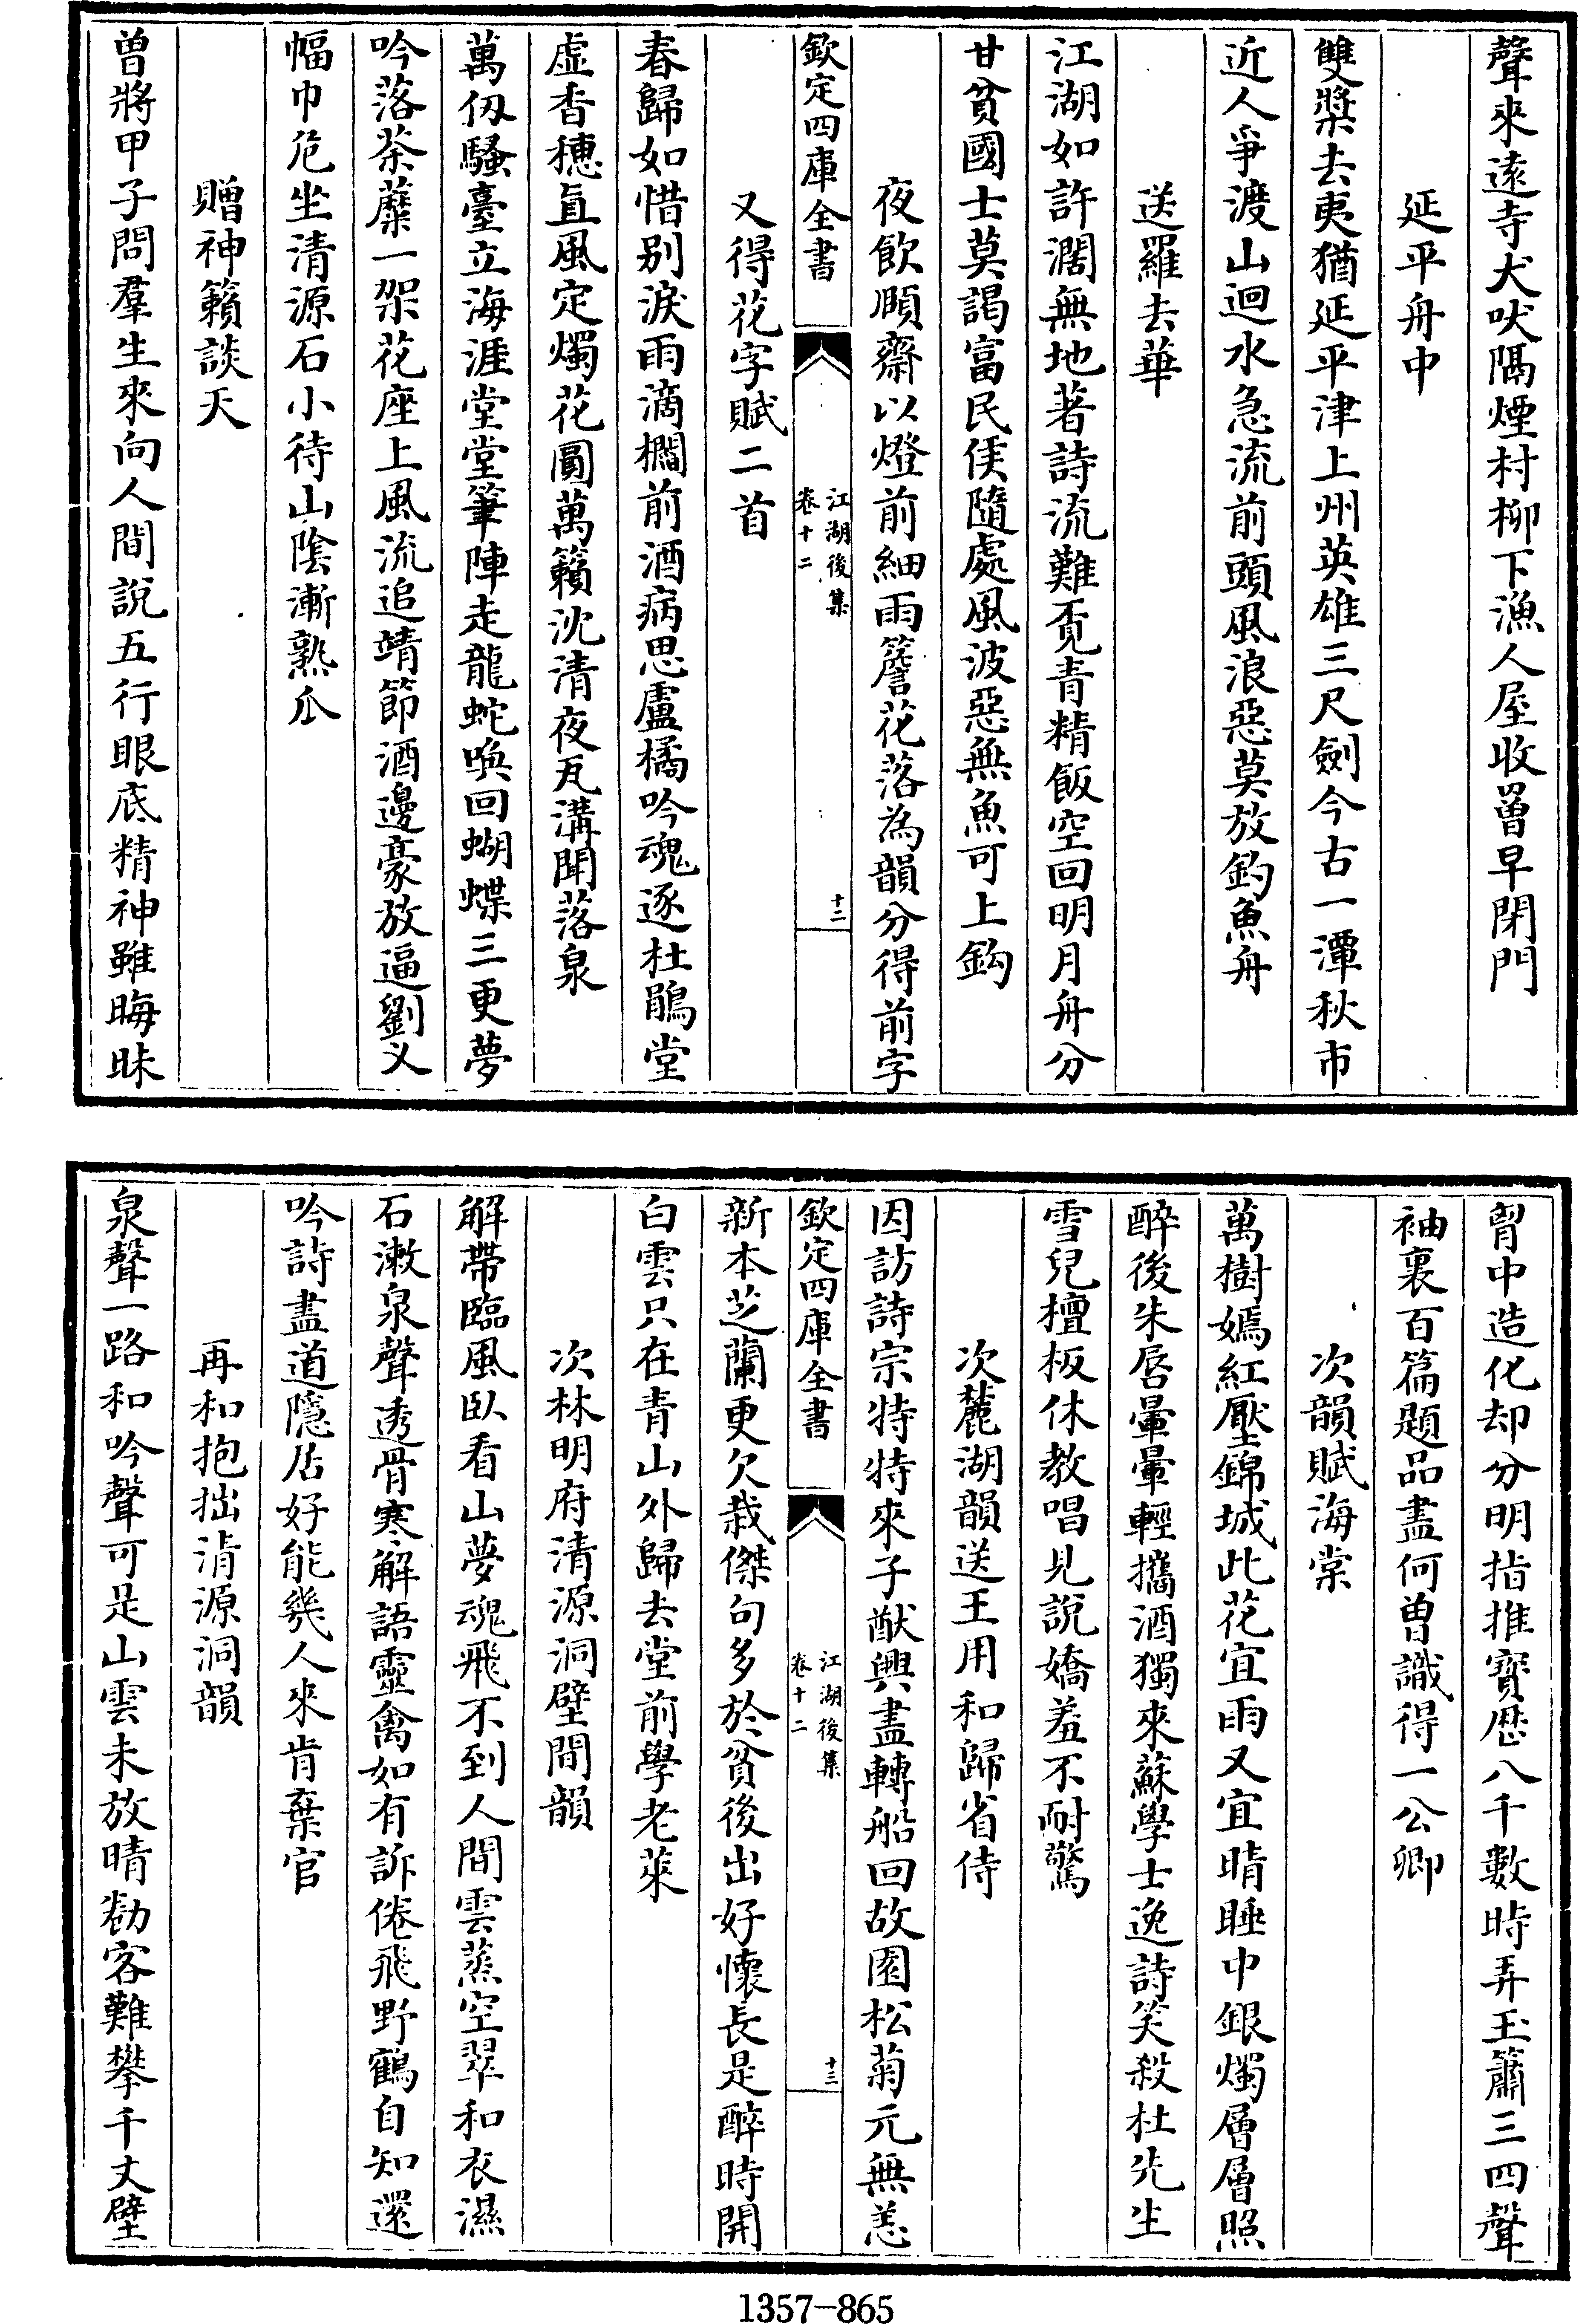 聲來遠寺犬吠隔煙村柳下漁人屋收罾早閉門
延平舟中
雙槳去夷猶延平津上州英雄三尺劍今古一潭秋市
近人爭渡山迴水急流前頭風浪惡莫放釣魚舟
送羅去華
江湖如許濶無地著詩流難覓青精飯空回明月舟分
甘貧國士莫謁富民侯隨處風波惡無魚可上鈎
夜飲頤齋以燈前細雨簷花落為韻分得前字
欽定四庫全書
江湖後集
卷十二
十二
又得花字賦二首
春歸如惜别淚雨滴欄前酒病思盧橘吟魂逐杜鵑堂
虛香穗直風定燭花圓萬籟沈清夜瓦溝聞落泉
萬仭騷臺立海涯堂堂筆陣走龍蛇喚回蝴蝶三更夢
吟落荼蘼一架花座上風流追靖節酒邊豪放逼劉义
幅巾危坐清源石小待山陰漸熟瓜
贈神籟談天
曽將甲子問羣生來向人間說五行眼底精神雖晦昧
胷中造化却分明指推寳歴八千數時弄玉簫三四聲
袖裏百篇題品盡何曽識得一公卿
次韻賦海棠
萬樹嫣紅壓錦城此花宜雨又宜晴睡中銀燭層層照
醉後朱唇暈暈輕攜酒獨來蘇學士逸詩笑殺杜先生
雪兒檀板休教唱見說嬌羞不耐驚
次麓湖韻送王用和歸省侍
因訪詩宗特特來子猷興盡轉船回故園松菊元無恙
欽定四庫全書
江湖後集
卷十二
十三
新本芝蘭更欠栽傑句多於貧後出好懷長是醉時開
白雲只在青山外歸去堂前學老萊
次林明府清源洞壁間韻
解帶臨風臥看山夢魂飛不到人間雲蒸空翠和衣濕
石漱泉聲透骨寒解語靈禽如有訴倦飛野鶴自知還
吟詩盡道隱居好能幾人來肯棄官
再和抱拙清源洞韻
泉聲一路和吟聲可是山雲未放晴勸客難攀千丈壁
1357-865